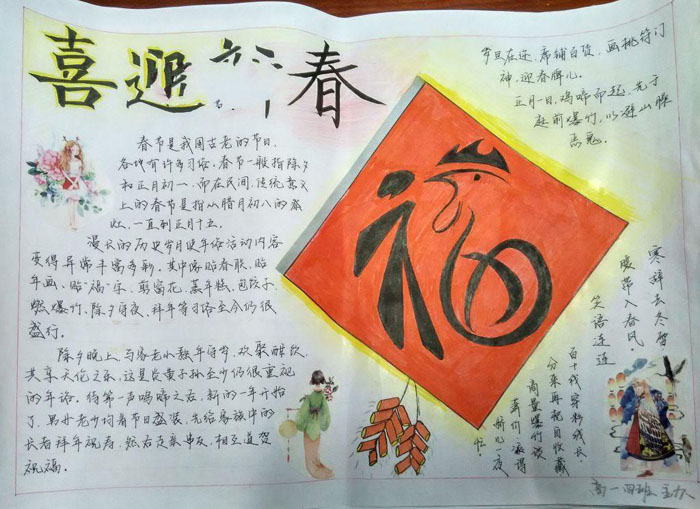 喜迎新春
春节是我国古老的节日，
各地有许多习俗，春节一般指除夕
和正月初一，而在民间，传统意义
上的春节是指从腊月初八的祭
灶，一直到正月十五。
漫长的历史岁月使年俗活动内容
变得异常丰富多彩。其中像贴春联、贴
年画、贴"福"字、剪窗花、蒸年糕、包饺子、
燃爆竹、除夕守夜、拜年等习俗至今仍很
盛行。
除夕晚上，与家老小熬年守岁，欢聚酣饮，
共享天伦之乐，这是炎黄子孙至少仍很重视
的年俗。待第一声鸡啼之后，新的一年开始
了，男女老少均着节日盛装，先给家族中的
长者拜年祝寿，然后走亲串友，相互道贺
祝福。
岁旦在迩，席铺百货，画桃符门
神，迎春牌儿。
正月一日，鸡鸣而起，先于
庭前爆竹，以避山臊
恶鬼。
福
寒辞去冬雪
暖带入春风。
笑语连连
商量爆竹谈
高一四班